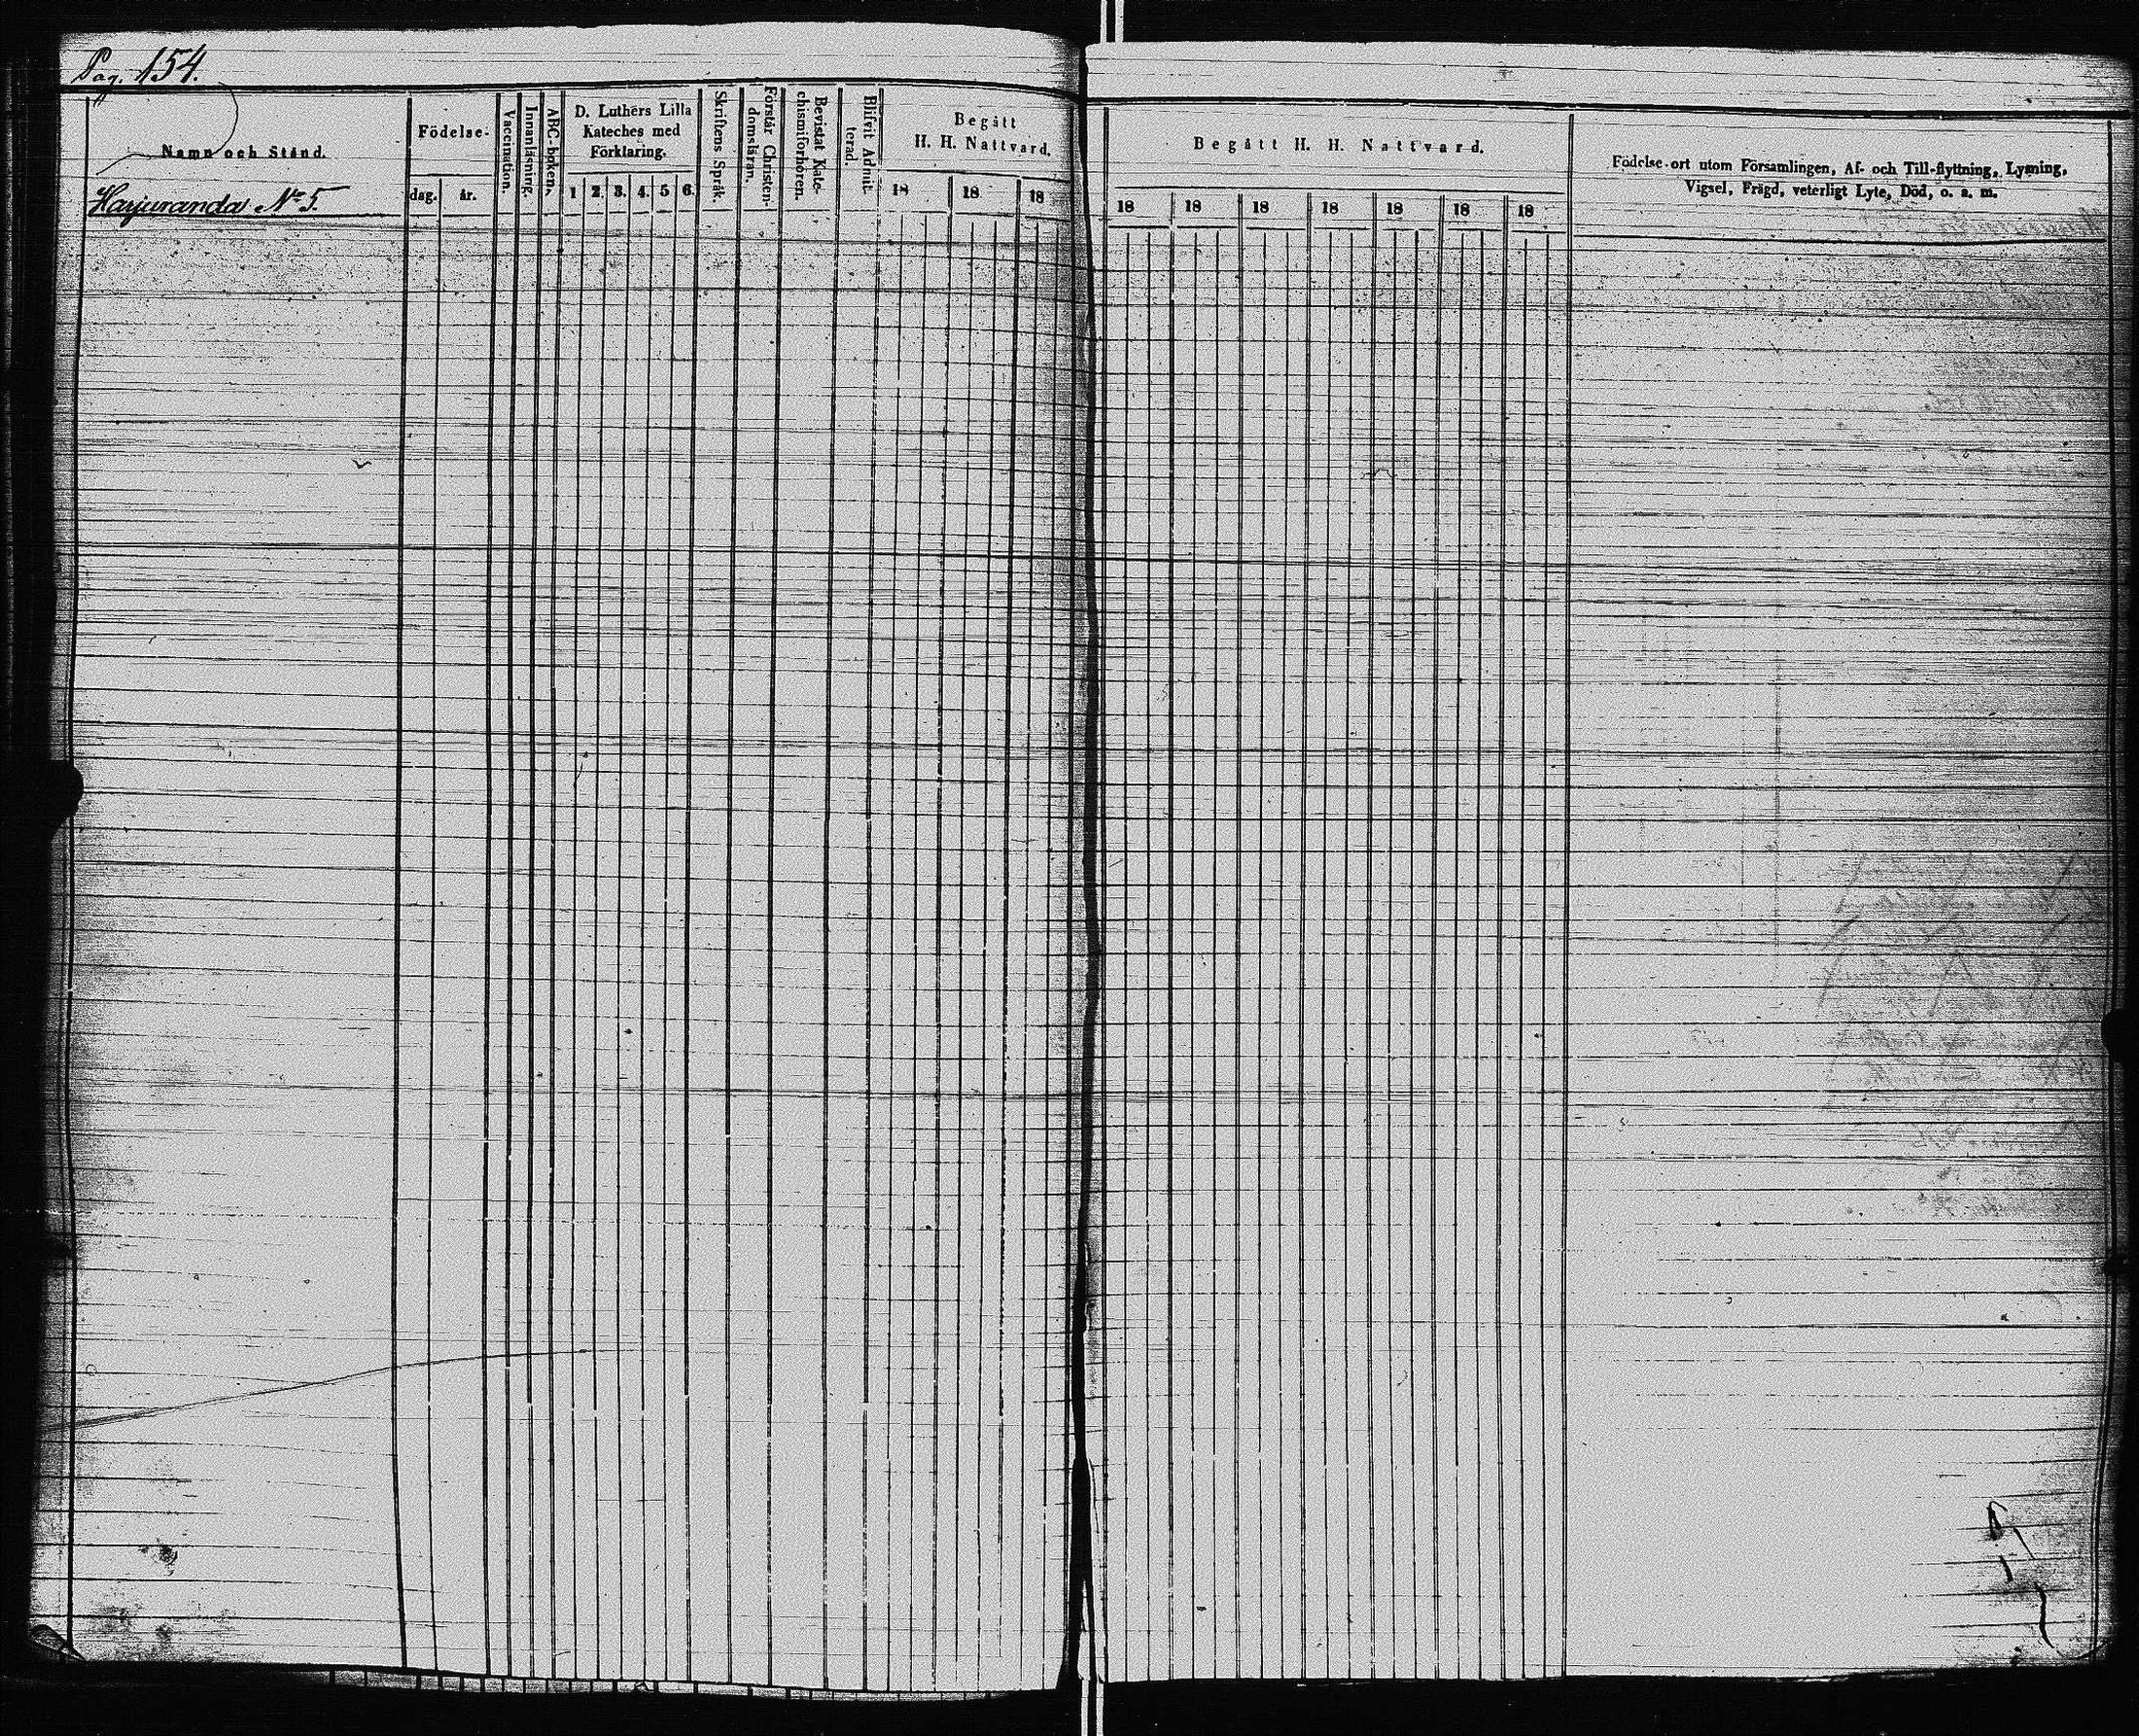 Pag. 154.
Namn och Stånd.
Harjuranda No 5.
Födelse-
dag. år.
Vaccination.
Innanläsning.
ABC-boken,
D. Luthers Lilla
Kateches med
Förklaring.
1 2. 3. 4. 5 6.
Skriftens Språk.
Förstår Christen-
domsläran.
Bevistat Kate-
chismiförhören.
Blifvit Admit-
terad.
Begått
H. H. Nattvard.
18 18 18
Begått H. H. Nattvard.
18 18 18 18 18 18 18
Födelse-ort utom Församlingen, Af- och Till-flyttning, Lysning,
Vigsel, Frägd, veterligt Lyte, Död, o. s. m.